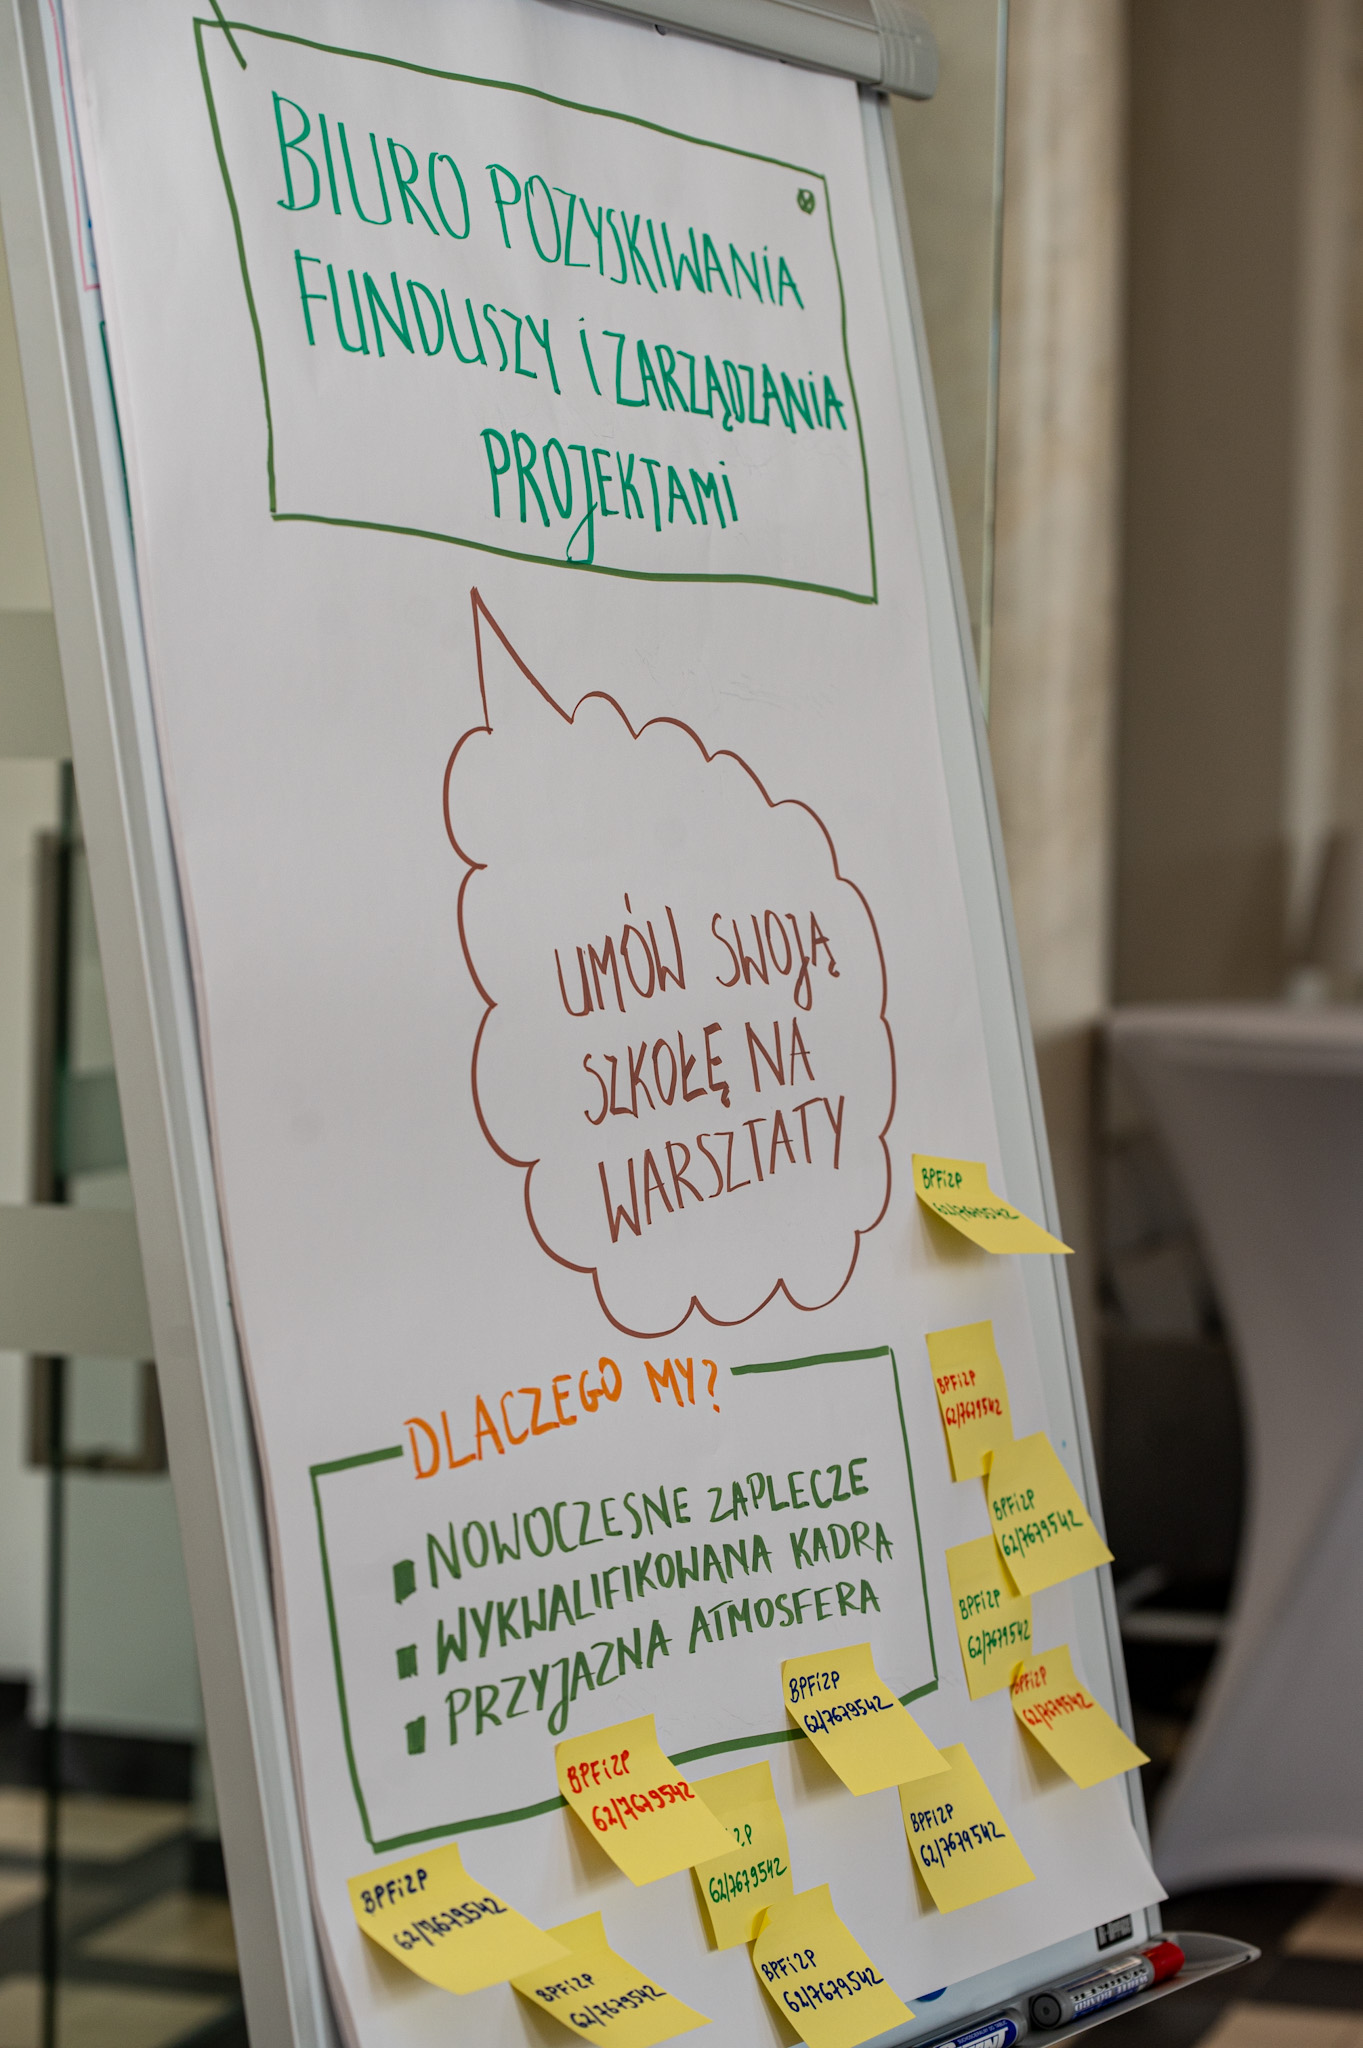 BIURO POZYSKIWANIA
FUNDUSZY I ZARZĄDZANIA
PROJEKTAMI
UMÓW SWOJĄ
SZKOŁĘ NA
WARSZTATY
DLACZEGO MY?
NOWOCZESNE ZAPLECZE
WYKWALIFIKOWANA KADRA
PRZYJAZNA ATMOSFERA
BPFiZP
62/7679542
BPFiZP
62/7679542
BPFiZP
62/7679542
BPFiZP
62/7679542
BPFiZP
62/7679542
BPFiZP
62/7679542
BPFiZP
62/7679542
ZP
62/7679542
BPFiZP
62/7679542
BPFiZP
62/7679542
BPFiZP
62/7679542
BPFiZP
62/7679542